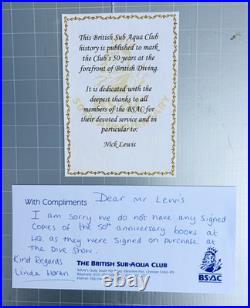 This British Sub Aqua Club
history is published to mark
the Club's 50 years at the
forefront of British Diving.
It is dedicated with the
deepest thanks to all
members of the BSAC for
their devoted service and in
particular to:
Nick Lewis
With Compliments
Dear Mr Lewis
I am sorry we do not have any signed
copies of the 50th anniversary books at
HQ as they were signed on purchase at
The Dive Show.
Kind Regards
Linda
THE BRITISH SUB-AQUA CLUB
BS·AC